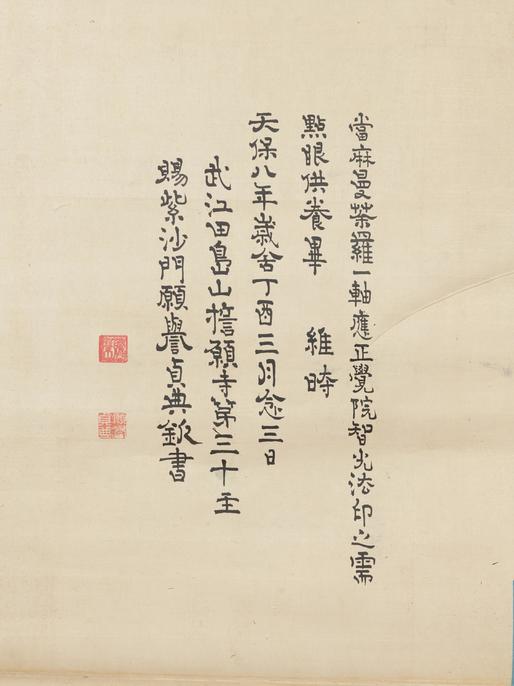 當麻曼荼羅一軸應正覺院智光法印之需
點眼供養畢　維時
天保八年歲舍丁酉三月念三日
武江田島山誓願寺第三十主
賜紫沙門願譽貞典欽書